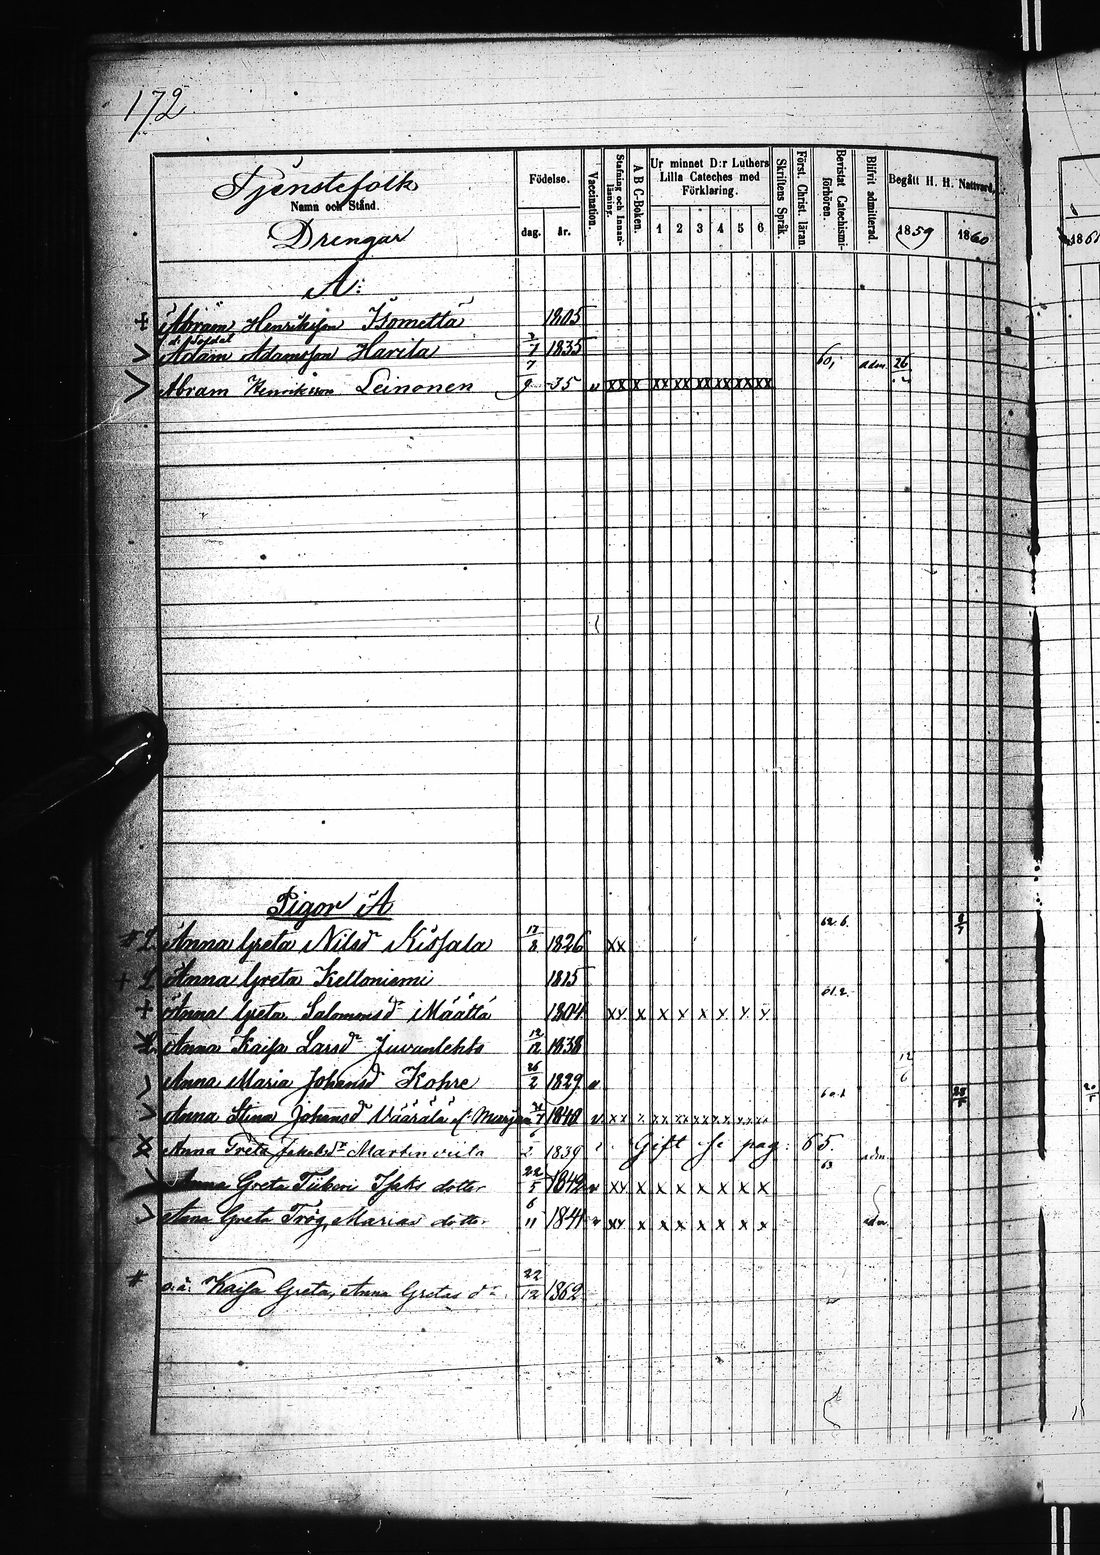 172
Tjenstefolk
Namn och Stånd.
Drengar
Födelse.
dag. år.
Vaccination.
Stafning och Innanläsning.
A B C-Boken.
Ur minnet D:r Luthers Lilla Cateches med Förklaring.
1 2 3 4 5 6
Skriftens Språk.
Först. Christ. läran.
Bevistat Catechismiförhören.
Blifvit admitterad.
Begått H. H. Nattvard.
1859 1860
A:
+ Abram Henriksson Isometta 1805
Adam Adamsson Harita 1835 60, adm 26
Abram Henriksson Leinonen 9 35 v xx x xx xx xx xx xx xx
Pigor A
62. 6. 8/7
Anna Greta Nilsd Kisjala 17/8 1826 xx
+ Anna Greta Kelloniemi 1815
61.2.
+ Anna Greta Salomonsd:r Määttä 1804 xx x x x x x x
Anna Kaisa Larsd:r Juvanlehto 12/12 1838
12/6
Anna Maria Johansd Kohre 26/2 1829 v
Anna Stina Johansd Väärälä 1840 v xx x xx xx xx xx xx xx
Anna Greta Jakobsd:r Martinviila 1839 Gift se pag: 65. adm
63
Anna Greta Tiikeri Isaks dotter 22/5 1842 v xx x x x x x x
Anna Greta Trög, Marias dotter 6/11 1844 v xx x x x x x x adm
# o.ä. Kaisa Greta, Anna Gretas d:r 22/12 1862